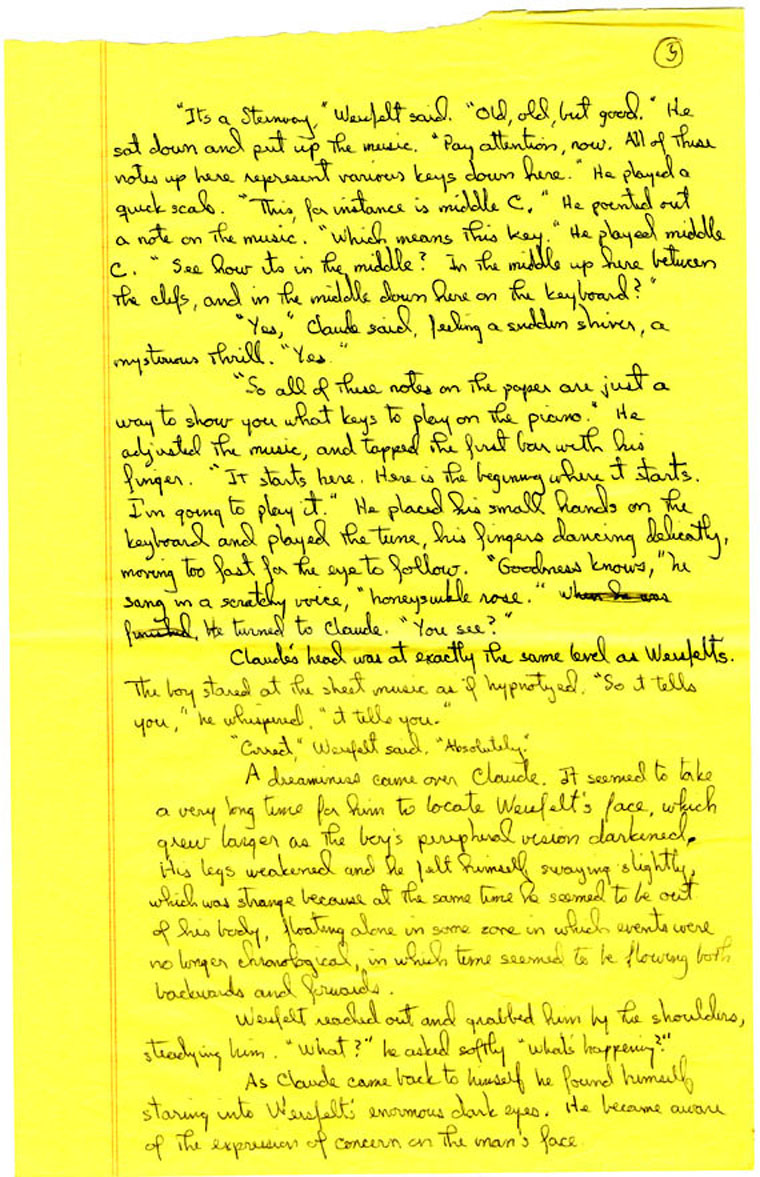 3
"Its a Steinway," Weisfelt said. "Old, old, but good." He
sat down and put up the music. "Pay attention, now. All of these
notes up here represent various keys down here." He played a
quick scale. "This, for instance is middle C." He pointed out
a note on the music. "Which means this key." He played middle
C. "See how its in the middle? In the middle up here between
the clefs, and in the middle down here on the keyboard?"
"Yes," Claude said, feeling a sudden shiver, a
mysterious thrill. "Yes."
"So all of these notes on the paper are just a
way to show you what keys to play on the piano." He
adjusted the music, and tapped the first bar with his
finger. "It starts here. Here is the beginning where it starts.
I'm going to play it." He placed his small hands on the
keyboard and played the tune, his fingers dancing delicately,
moving too fast for the eye to follow. "Goodness knows," he
sang in a scratchy voice, "honeysuckle rose." When he was
finished, He turned to Claude. "You see?"
Claude's head was at exactly the same level as Weisfelts.
The boy stared at the sheet music as if hypnotyzed. "So it tells
you," he whispered, "it tells you."
"Correct," Weisfelt said. "Absolutely."
A dreaminess came over Claude. It seemed to take
a very long time for him to locate Weisfelt's face, which
grew larger as the boy's peripheral vision darkened.
His legs weakened and he felt himself swaying slightly,
which was strange because at the same time he seemed to be out
of his body, floating alone in some zone in which events were
no longer chronological, in which time seemed to be flowing both
backwards and forwards.
Weisfelt reached out and grabbed him by the shoulders,
steadying him. "What?" he asked softly "What's happening?"
As Claude came back to himself he found himself
staring into Weisfelt's enormous dark eyes. He became aware
of the expression of concern on the man's face.